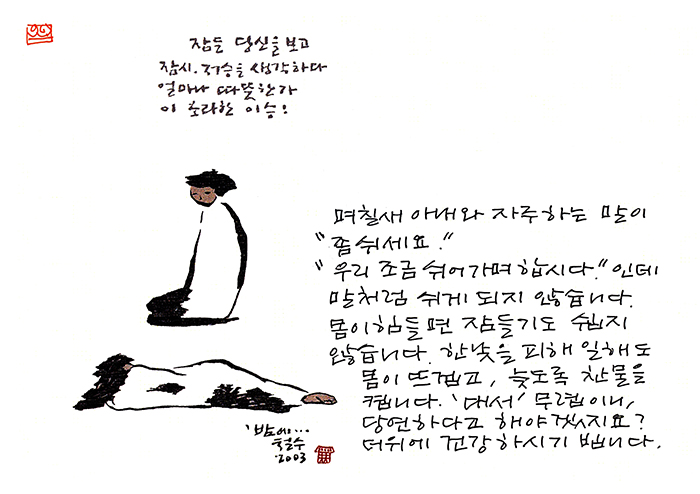 잠든 당신을 보고
잠시. 저승을 생각하다
얼마나 따뜻한가
이 초라한 이승!
며칠새 아내와 자주하는 말이
"좀 쉬세요."
"우리 조금 쉬어가며 합시다." 인데
말처럼 쉬게 되지 않습니다.
몸이 힘들면 잠들기도 쉽지
않습니다. 한낮을 피해 일해도
몸이 뜨겁고, 늦도록 찬물을
켭니다. '대서' 무렵이니,
당연하다고 해야겠지요?
더위에 건강하시기 빕니다.
'밤에...
철수
2003